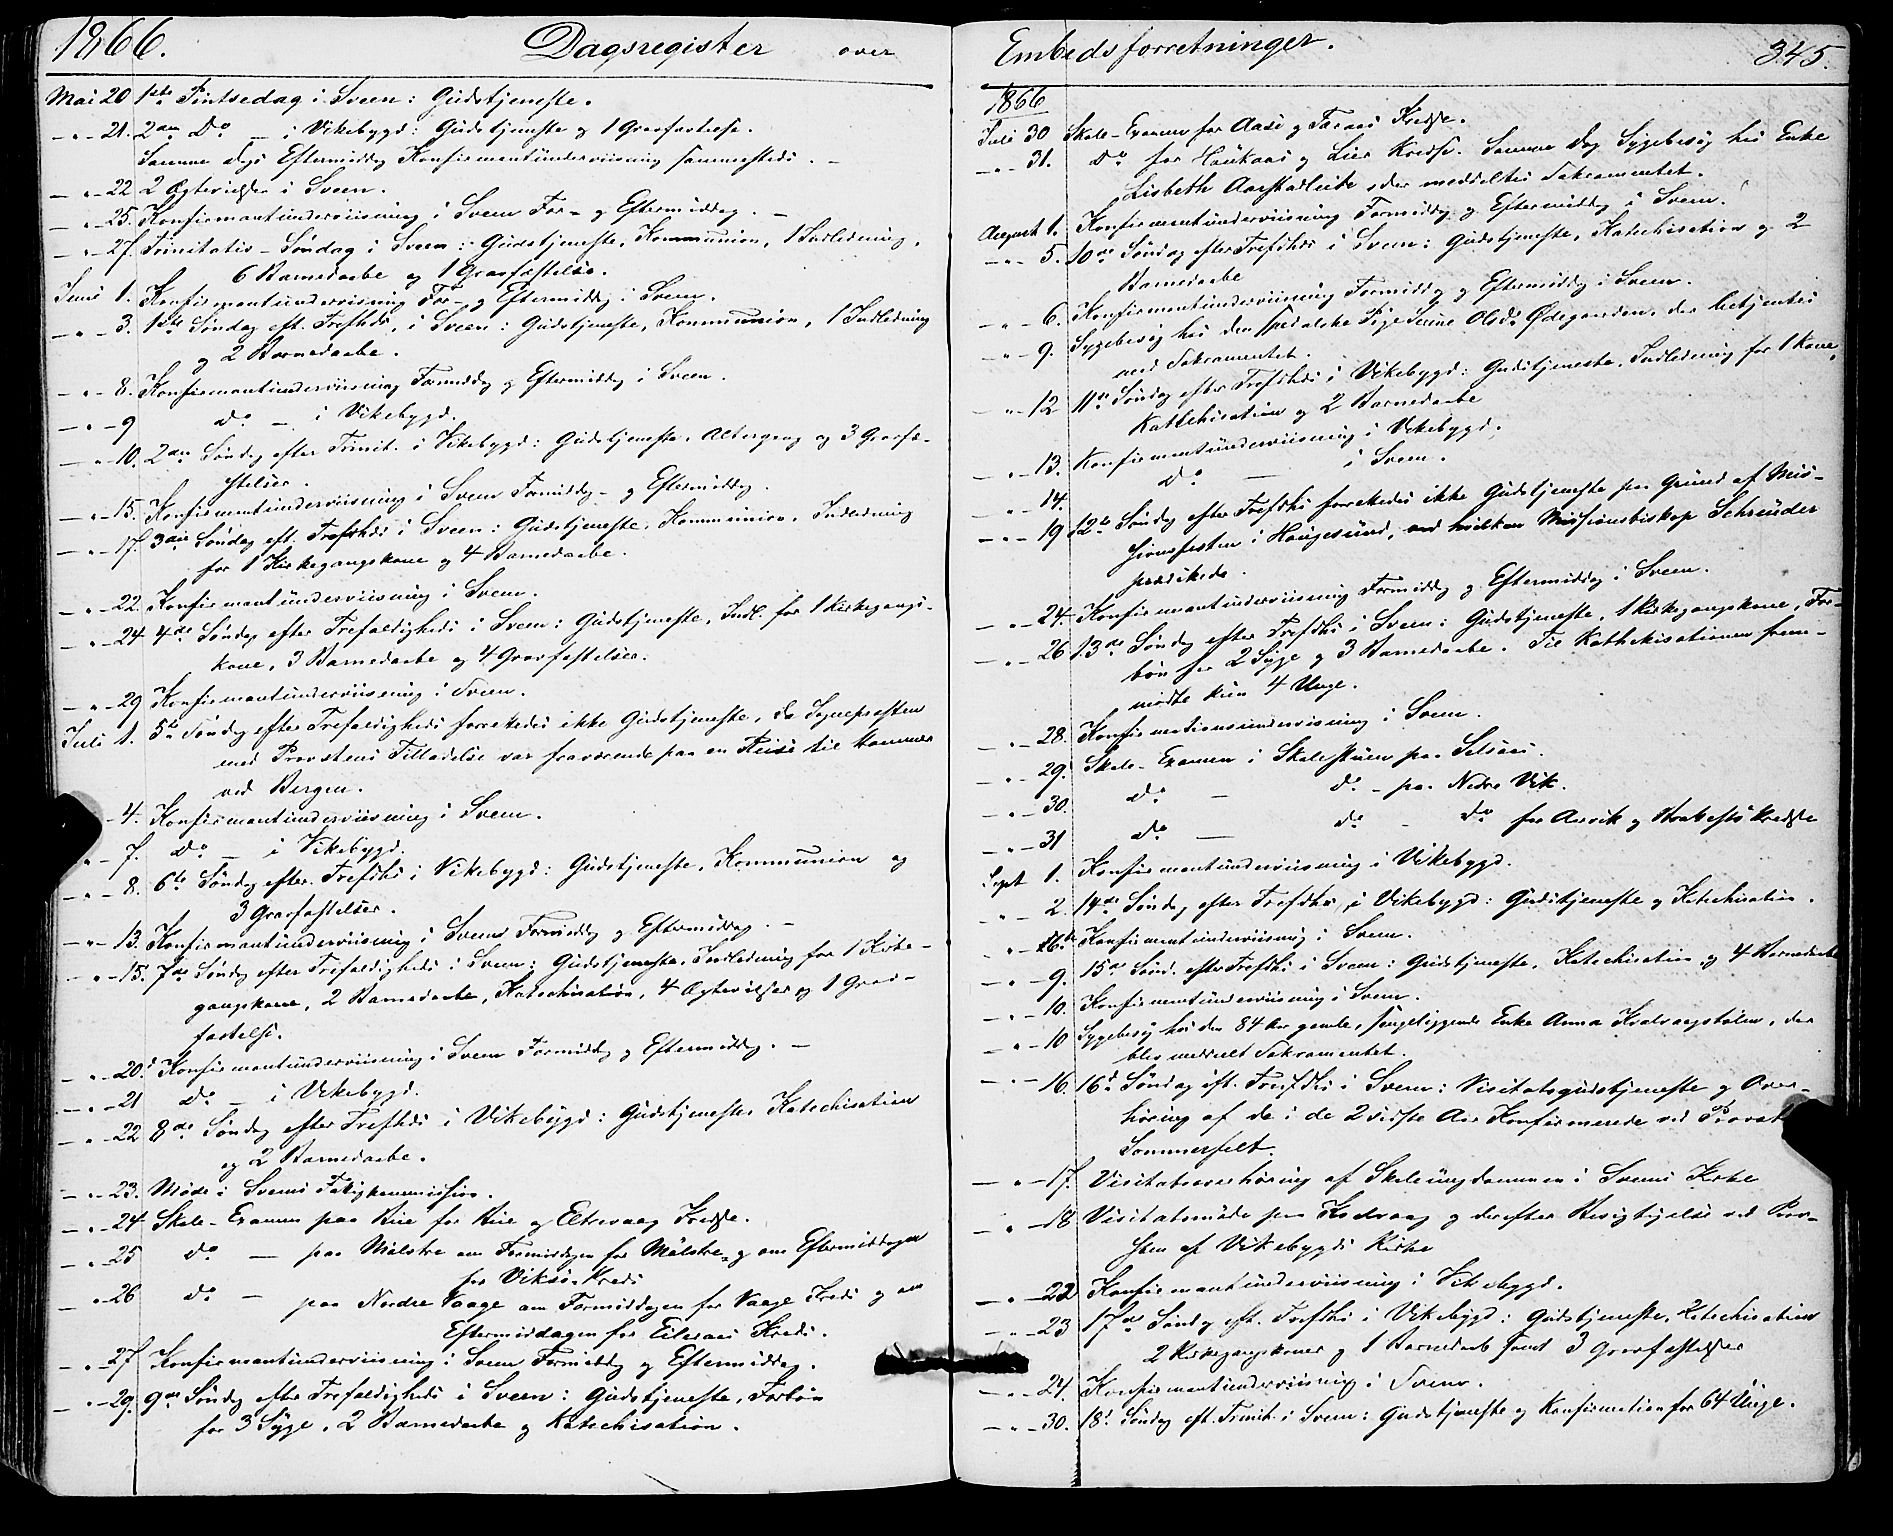 1866. Dagsregister over
Mai 20 1ste Pintsedag i Sveen: Gudstjeneste.
— " — 21. 2den Do — i Vikebygd: Gudstjeneste og 1 Gravfæstelse.
Samme Dags Eftermiddag Konfirmantundervisning sammesteds. —
— " — 22 2 Ægtevielser i Sveen.
— " — 25. Konfirmantundervisning i Sveen For- og Eftermiddag. —
— " — 27. Trinitatis-Söndag i Sveen: Gudstjeneste, Kommunion, 1 Indledning,
6 Barnedaabe og 1 Gravfæstelse.
Juni 1. Konfirmantundervisning For- og Eftermiddag i Sveen.
— " — 3. 1ste Söndag eft. Trefhds. i Sveen: Gudstjeneste, Kommunion, 1 Indledning
og 2 Barnedaabe.
— " — 8. Konfirmantundervisning Formiddag og Eftermiddag i Sveen.
— " — 9 Do — i Vikebygd.
— " — 10. 2den Söndag efter Trinit. i Vikebygd: Gudstjeneste, Altergang og 3 Gravfæ-
stelser.
— " — 15. Konfirmantundervisning i Sveen Formiddag- og Eftermiddag.
— " — 17. 3die Söndag eft. Trefhds i Sveen: Gudstjeneste, Kommunion, Indledning
for 1 Kirkegangskone og 4 Barnedaabe.
— " — 22. Konfirmantundervisning i Sveen.
— " — 24 4de Söndag efter Trefoldigheds i Sveen: Gudstjeneste, Indl. for 1 Kirkegangs-
kone, 3 Barnedaabe og 4 Gravfæstelser.
— " — 29 Konfirmantundervisning i Sveen.
Juli 1. 5te Söndag efter Trefoldigheds forrettedes ikke Gudstjeneste, da Sognepræsten
med Provstens Tilladelse var fraværende paa en Reise til Hammer
ved Bergen.
— 4. Konfirmantundervisning i Sveen.
" — 7. Do — i Vikebygd.
— " — 8. 6te Söndag efter Trefdhs i Vikebygd: Gudstjeneste, Kommunion og
3 Gravfæstelser.
— " — 13. Konfirmantundervisning i Sveen Formiddag og Eftermiddag. —
— " — 15. 7de Söndag efter Trefoldigheds i Sveen: Gudstjeneste, Indledning for 1 Kirke-
gangskone, 2 Barnedaabe, Katechisation, 4 Ægtevielser og 1 Grav-
fæstelse.
— " — 20. Konfirmantundervisning i Sveen Formiddag og Eftermiddag. —
— " — 21 Do — i Vikebygd.
— " — 22 8de Söndag efter Trefhds i Vikebygd: Gudstjeneste Katechisation
og 2 Barnedaabe.
— " — 23. Möde i Sveens Fattigkommission.
— " — 24 Skole-Examen paa Rue for Rue og Eltrevaag Kredse.
— " — 25 do — paa Mölstre om Formiddagen for Mölstre- og om Eftermiddagen
for Viksö-Kreds
— " 26 do — paa Nordre Vaage om Formiddagen for Vaage Kreds og om
Eftermiddagen for Eileraas Kreds.
— " — 27. Konfirmantundervisning i Sveen Formiddag og Eftermiddag.
— " — 29. 9de Söndag efter Trefoldigheds i Sveen: Gudstjeneste, Forbön
for 3 Syge, 2 Barnedaabe og Katechisation.
Embedsforretninger. 345.
1866
Juli 30 Skole-Examen for Aase og Kredse.
— " — 31. Do for Houkaas og Lier Kredse. Samme Dag Sygebesög hos Enke
Lisbeth Aarstadleite der meddeltes Sakramentet.
August 1. Konfirmantundervisning Formiddag og Eftermiddag i Sveen.
— " — 5. 10de Söndag efter Trefdhs i Sveen: Gudstjeneste, Katechisation og 2
Barnedaabe
— " — 6. Konfirmantundervisning Formiddag og Eftermiddag i Sveen.
— " — 9. Sygebesög hos den spedalske Pige Olsd. Ödegaarden, der betjentes
med Sakramentet.
— " — 12 11te Söndag efter Trefdhs i Vikebygd: Gudstjeneste, Indledning for 1 Kone,
Katechisation og 2 Barnedaabe
— " — 13. Konfirmantundervisning i Vikebygd.
— " — 14. Do — i Sveen.
— " — 19 12te Söndag efter Trefdhs forrettedes ikke Gudstjeneste paa Grund af Mis-
sionsfesten i Haugesund, ved hvilken Missionsbiskop Schreuder
prædikede.
— " — 24. Konfirmantundervisning Formiddag og Eftermiddag i Sveen.
— " — 26 13de Söndag efter Trefdhs i Sveen: Gudstjeneste, 1 Kirkegangskone, For-
bön for 2 Syge og 3 Barnedaabe. Til Kathekisationen frem-
mödte kun 4 Unge.
— " — 28. Konfirmationsundervisning i Sveen.
— " — 29. Skole-Examen i Skolestuen paa Selsaas.
— " — 30. do — do — paa Nedre Vik.
— " — 31 do — do — do for Aurvik og Kredse
Sept 1. Konfirmantundervisning i Vikebygd.
" — 2. 14de Söndag efter Trefdhs, i Vikebygd: Gudstjeneste og Katechisation.
— " — 6. Konfirmantundervisning i Sveen.
— " — 9. 15de Sönd. efter Trefdhs i Sveen: Gudstjeneste, Katechisation og 4 Barnedaabe
— " — 10. Konfirmantundervisning i Sveen.
— " — 10 Sygebesög hos den 84 Aar gamle, sengeliggende Enke Anna Kvalvaagstölen, der
blev meddelt Sakramentet.
— " — 16. 16d Söndag eft. Trefdhs i Sveen: Visitatsgudstjeneste og Over-
höring af de i de 2 sidste Aar Konfirmerede ved Provst
Sommerfelt.
— " — 17. Visitatsoverhöring af Skoleungdommen i Sveens Kirke
— " — 18 Visitatsmöde paa og derefter Besigtigelse ved Prov-
sten af Vikebygds Kirke
— " — 22 Konfirmantundervisning i Vikebygd.
— " — 23 17de Söndag eft. Trefdhs i Vikebygd: Gudstjeneste, Katechisation
2 Kirkegangskoner og 1 Barnedaab samt 3 Gravfæstelser
— " — 24. Konfirmantundervisning i Sveen.
— " — 30. 18d Söndag eft. Trinit. i Sveen: Gudstjeneste og Konfirmation for 64 Unge.